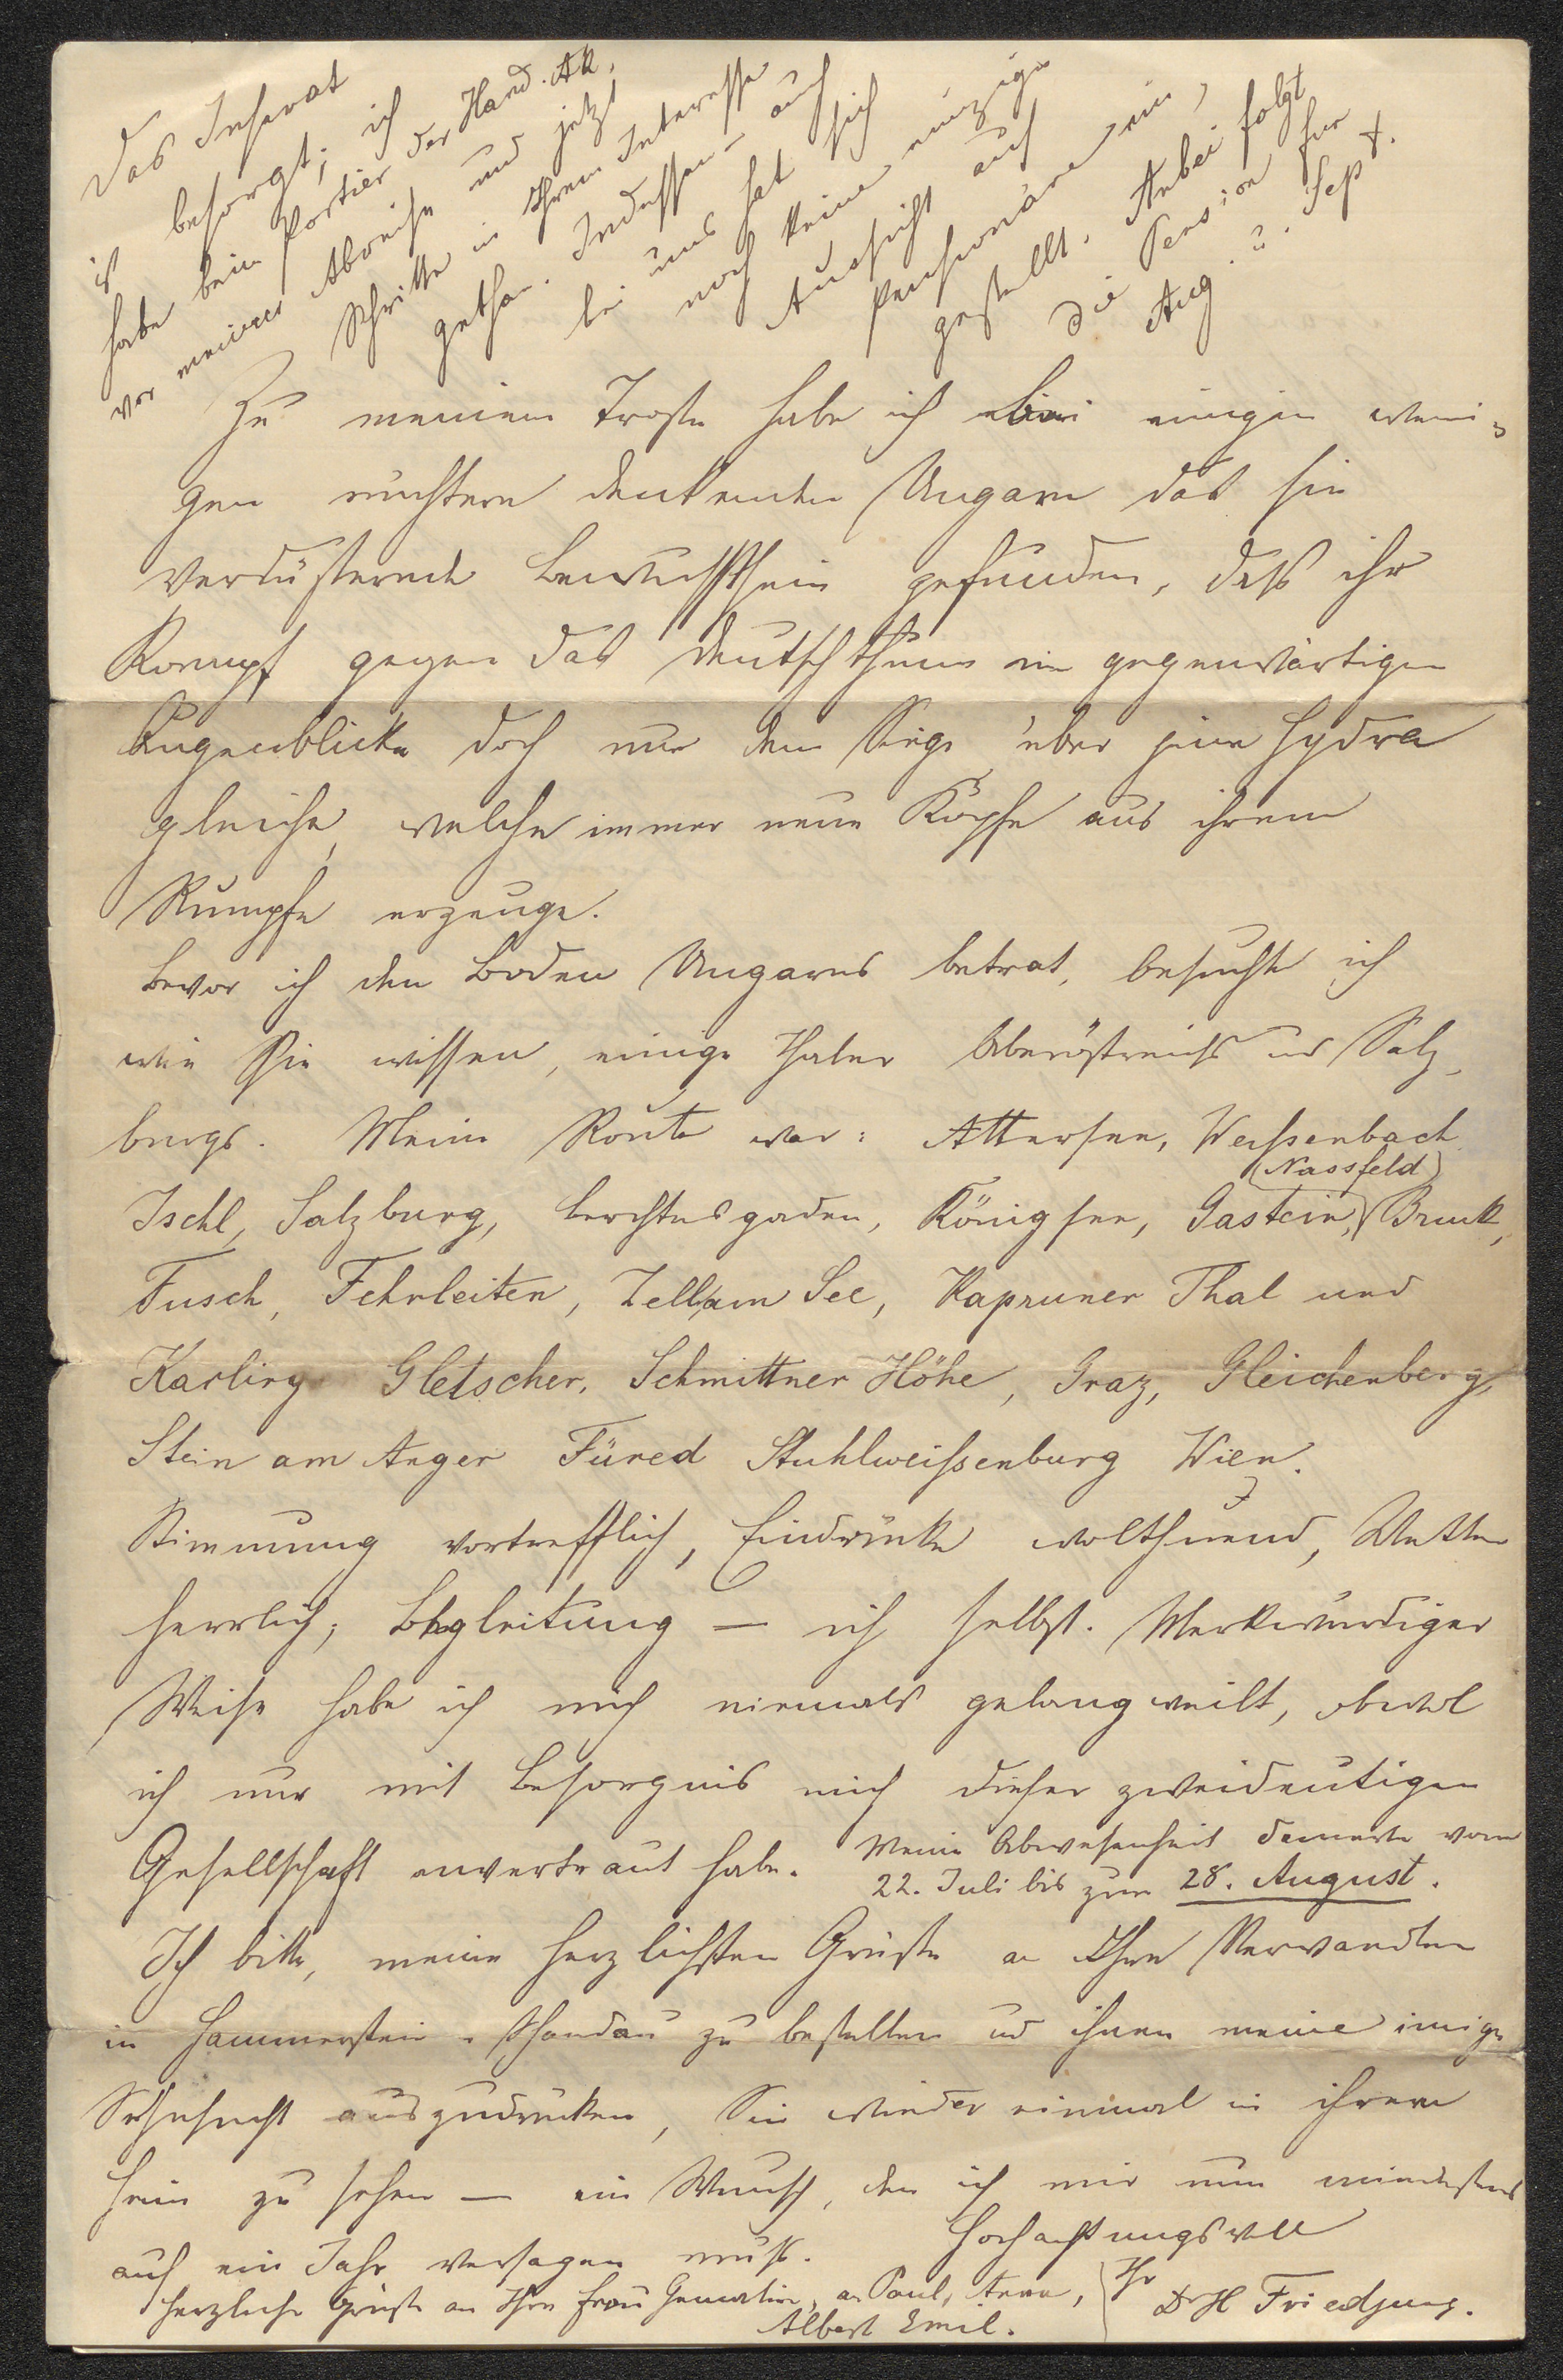 Das Inserat
ist besorgt; ich
habe beim Portier der Hand. Ak.
vor meiner Abreise und jetzt
Schritte in Ihrem Interesse
gethan. Indessen – auch
bei uns hat sich
noch keine einzige
Aussicht auf
Pensionäre ein,
gestellt. Anbei folgt
die Pension für
Aug. u. Sept.
Zu meinem Troste habe ich bei einigen weni-
gen nüchtern denkenden Ungarn das sie
verdüsternde Bewusstsein gefunden, dass ihr
Kampf gegen das Deutschthum im gegenwärtigen
Augenblicke doch nur dem Siege über jene Hydra
gleiche, welche immer neue Köpfe aus ihrem
Rumpfe erzeuge.
Bevor ich den Boden Ungarns betrat, besuchte ich
wie Sie wissen, einige Thäler Oberöstreichs und Salz-
burgs. Meine Route war: Attersee, Weißenbach
(Nassfeld)
Ischl, Salzburg, Berchtesgaden, Königsee, Gastein, Bruck,
Fusch, Fehrleiten, Zell am See, Kapruner Thal und
Karling Gletscher, Schmittner Höhe, Graz, Gleichenberg,
Stein am Anger Füred Stuhlweißenburg Wien.
Stimmung vortrefflich, Eindrücke wolthuend, Wetter
herrlich; Begleitung — ich selbst. Merkwürdiger
Weise habe ich mich niemals gelangweilt, obwol
ich nur mit Besorgnis mich dieser zweideutigen
Gesellschaft anvertraut habe. Meine Abwesenheit dauerte vom
22. Juli bis zum 28. August.
Ich bitte, meine herzlichsten Grüße an Ihre Verwandten
in Hammerstein u Schandau zu bestellen und ihnen meine innige
Sehnsucht auszudrücken, Sie wieder einmal in ihrem
Heim zu sehen — ein Wunsch, den ich mir nun mindestens
auf ein Jahr versagen muß. Hochachtungsvoll
Herzliche Grüße an Ihre Frau Gemalin, an Paul, Anna, Ihr
Albert Emil. Dr H Friedjung.